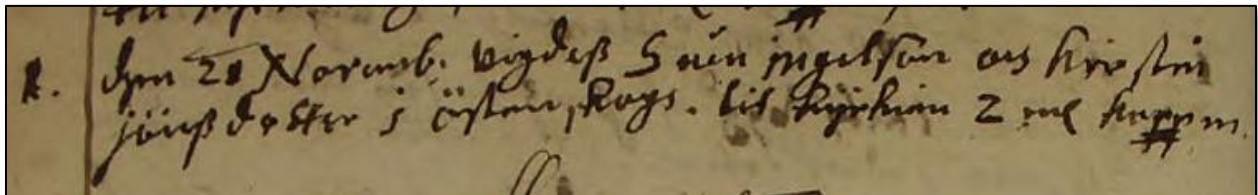 k. den 28 Novemb. vigdeß Suen ingelson och kirstin
jönß dotter i östen skogs. til kyrkian 2 mk kopp m.